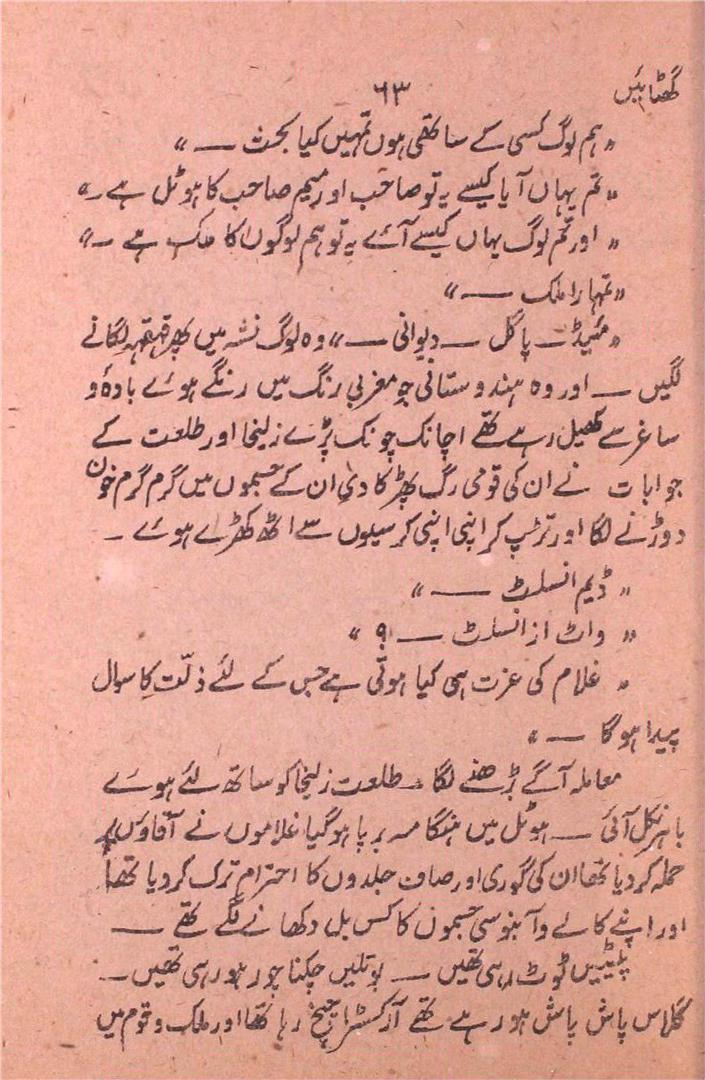 گھٹائیں
۶۳
"ہم لوگ کسی کے ساتھی ہوں تمہیں کیا بحث ــــ"
"تم یہاں آیا کیسے یہ تو صاحب اور میم صاحب کا ہوٹل ہے ــ"
"اور تم لوگ یہاں کیسے آئے یہ تو ہم لوگوں کا ملک ہے ــ"
"تمہارا ملک ــــ"
"میڈ ــ پاگل ــ دیوانی ــ" وہ لوگ نشہ میں پھر قہقہہ لگانے
لگیں ــ اور وہ ہندوستانی جو مغربی رنگ میں رنگے ہوئے بادۂ و
ساغر سے کھیل رہے تھے اچانک چونک پڑے زلیخا اور طلعت کے
جوابات نے ان کی قومی رگ پھڑکا دی ان کے جسموں میں گرم گرم خون
دوڑنے لگا اور تڑپ کر اپنی اپنی کرسیوں سے اٹھ کھڑے ہوئے ــ
"ڈیم انسلٹ ــــ"
"واٹ از انسلٹ ــــ؟"
"غلام کی عزت ہی کیا ہوتی ہے جس کے لئے ذلّت کا سوال
پیدا ہوگا ــــ"
معاملہ آگے بڑھنے لگا ــ طلعت زلیخا کو ساتھ لئے ہوئے
باہر نکل آئی ــ ہوٹل میں ہنگامہ برپا ہوگیا غلاموں نے آقاؤں پر
حملہ کر دیا تھا ان کی گوری اور صاف جلدوں کا احترام ترک کر دیا تھا
اور اپنے کالے و آبنوسی جسموں کا کس بل دکھانے لگے تھے ــــ
پلیٹیں ٹوٹ رہی تھیں ــ بوتلیں چکنا چور ہو رہی تھیں ــ
گلاس پاش پاش ہو رہے تھے آرکسٹرا چیخ رہا تھا اور ملک و قوم میں